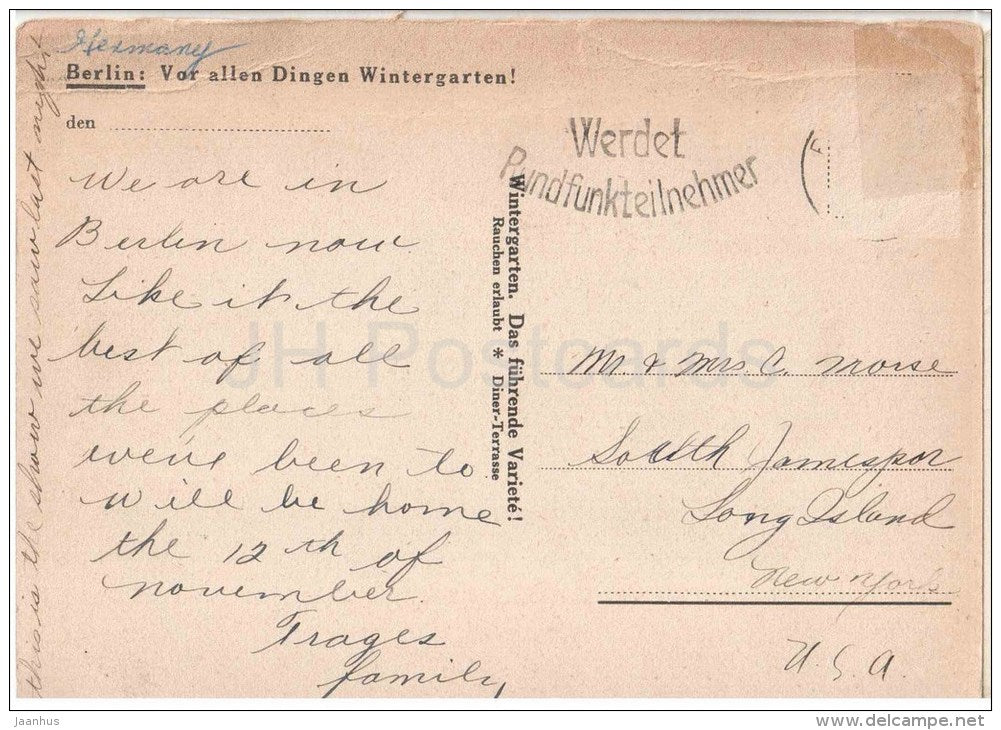 Germany
Berlin: Vor allen Dingen Wintergarten!
den
We are in
Berlin now.
Like it the
best of all
the places
weve been to
will be home
the 12th of
november.
Trages
family,
this is the show we saw last night
Wintergarten. Das führende Varieté!
Rauchen erlaubt * Diner-Terrasse
Werdet
Rundfunkteilnehmer
Mr & Mrs. C. Morse
South Jamespor
Long Island
New York
U.S.A.
JH Postcards
jaanhus
www.delcampe.net